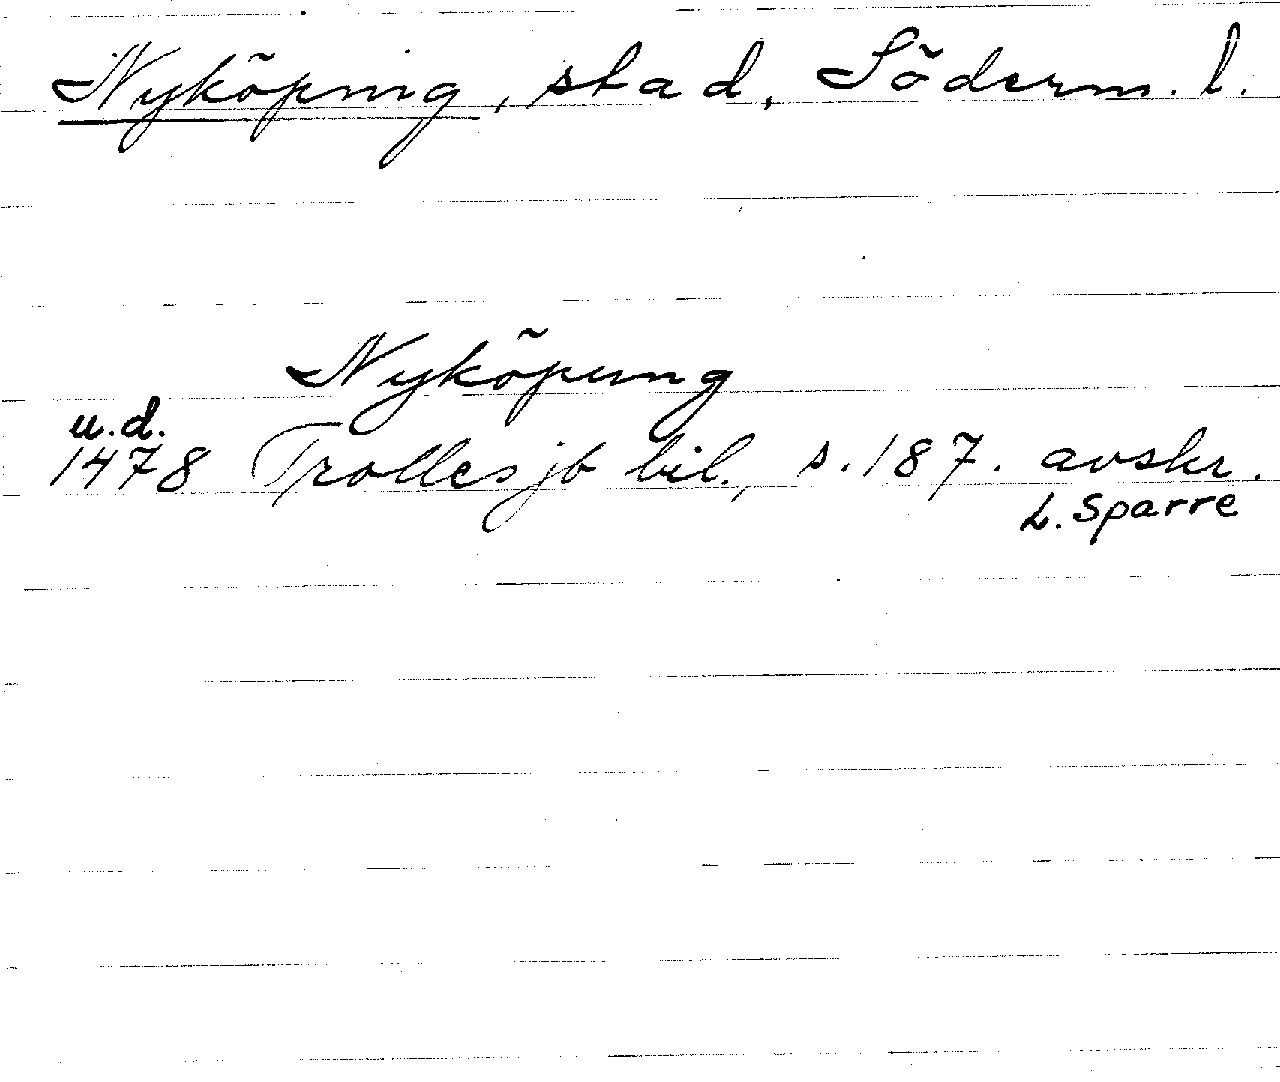 Nyköping, stad, Söderm. l.
Nyköpung
u.d.
1478 Trolles jb bil., s. 187. avskr.
L. Sparre